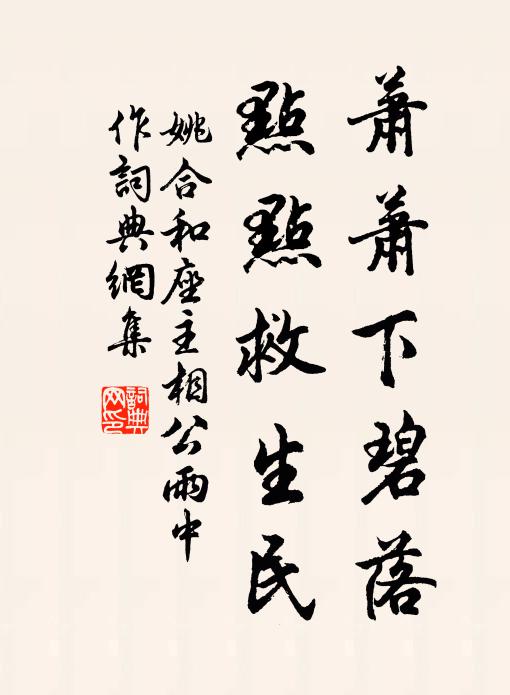 蕭蕭下碧落
點點救生民
姚合和座主相公雨中
作詞典網集
詞典
网印